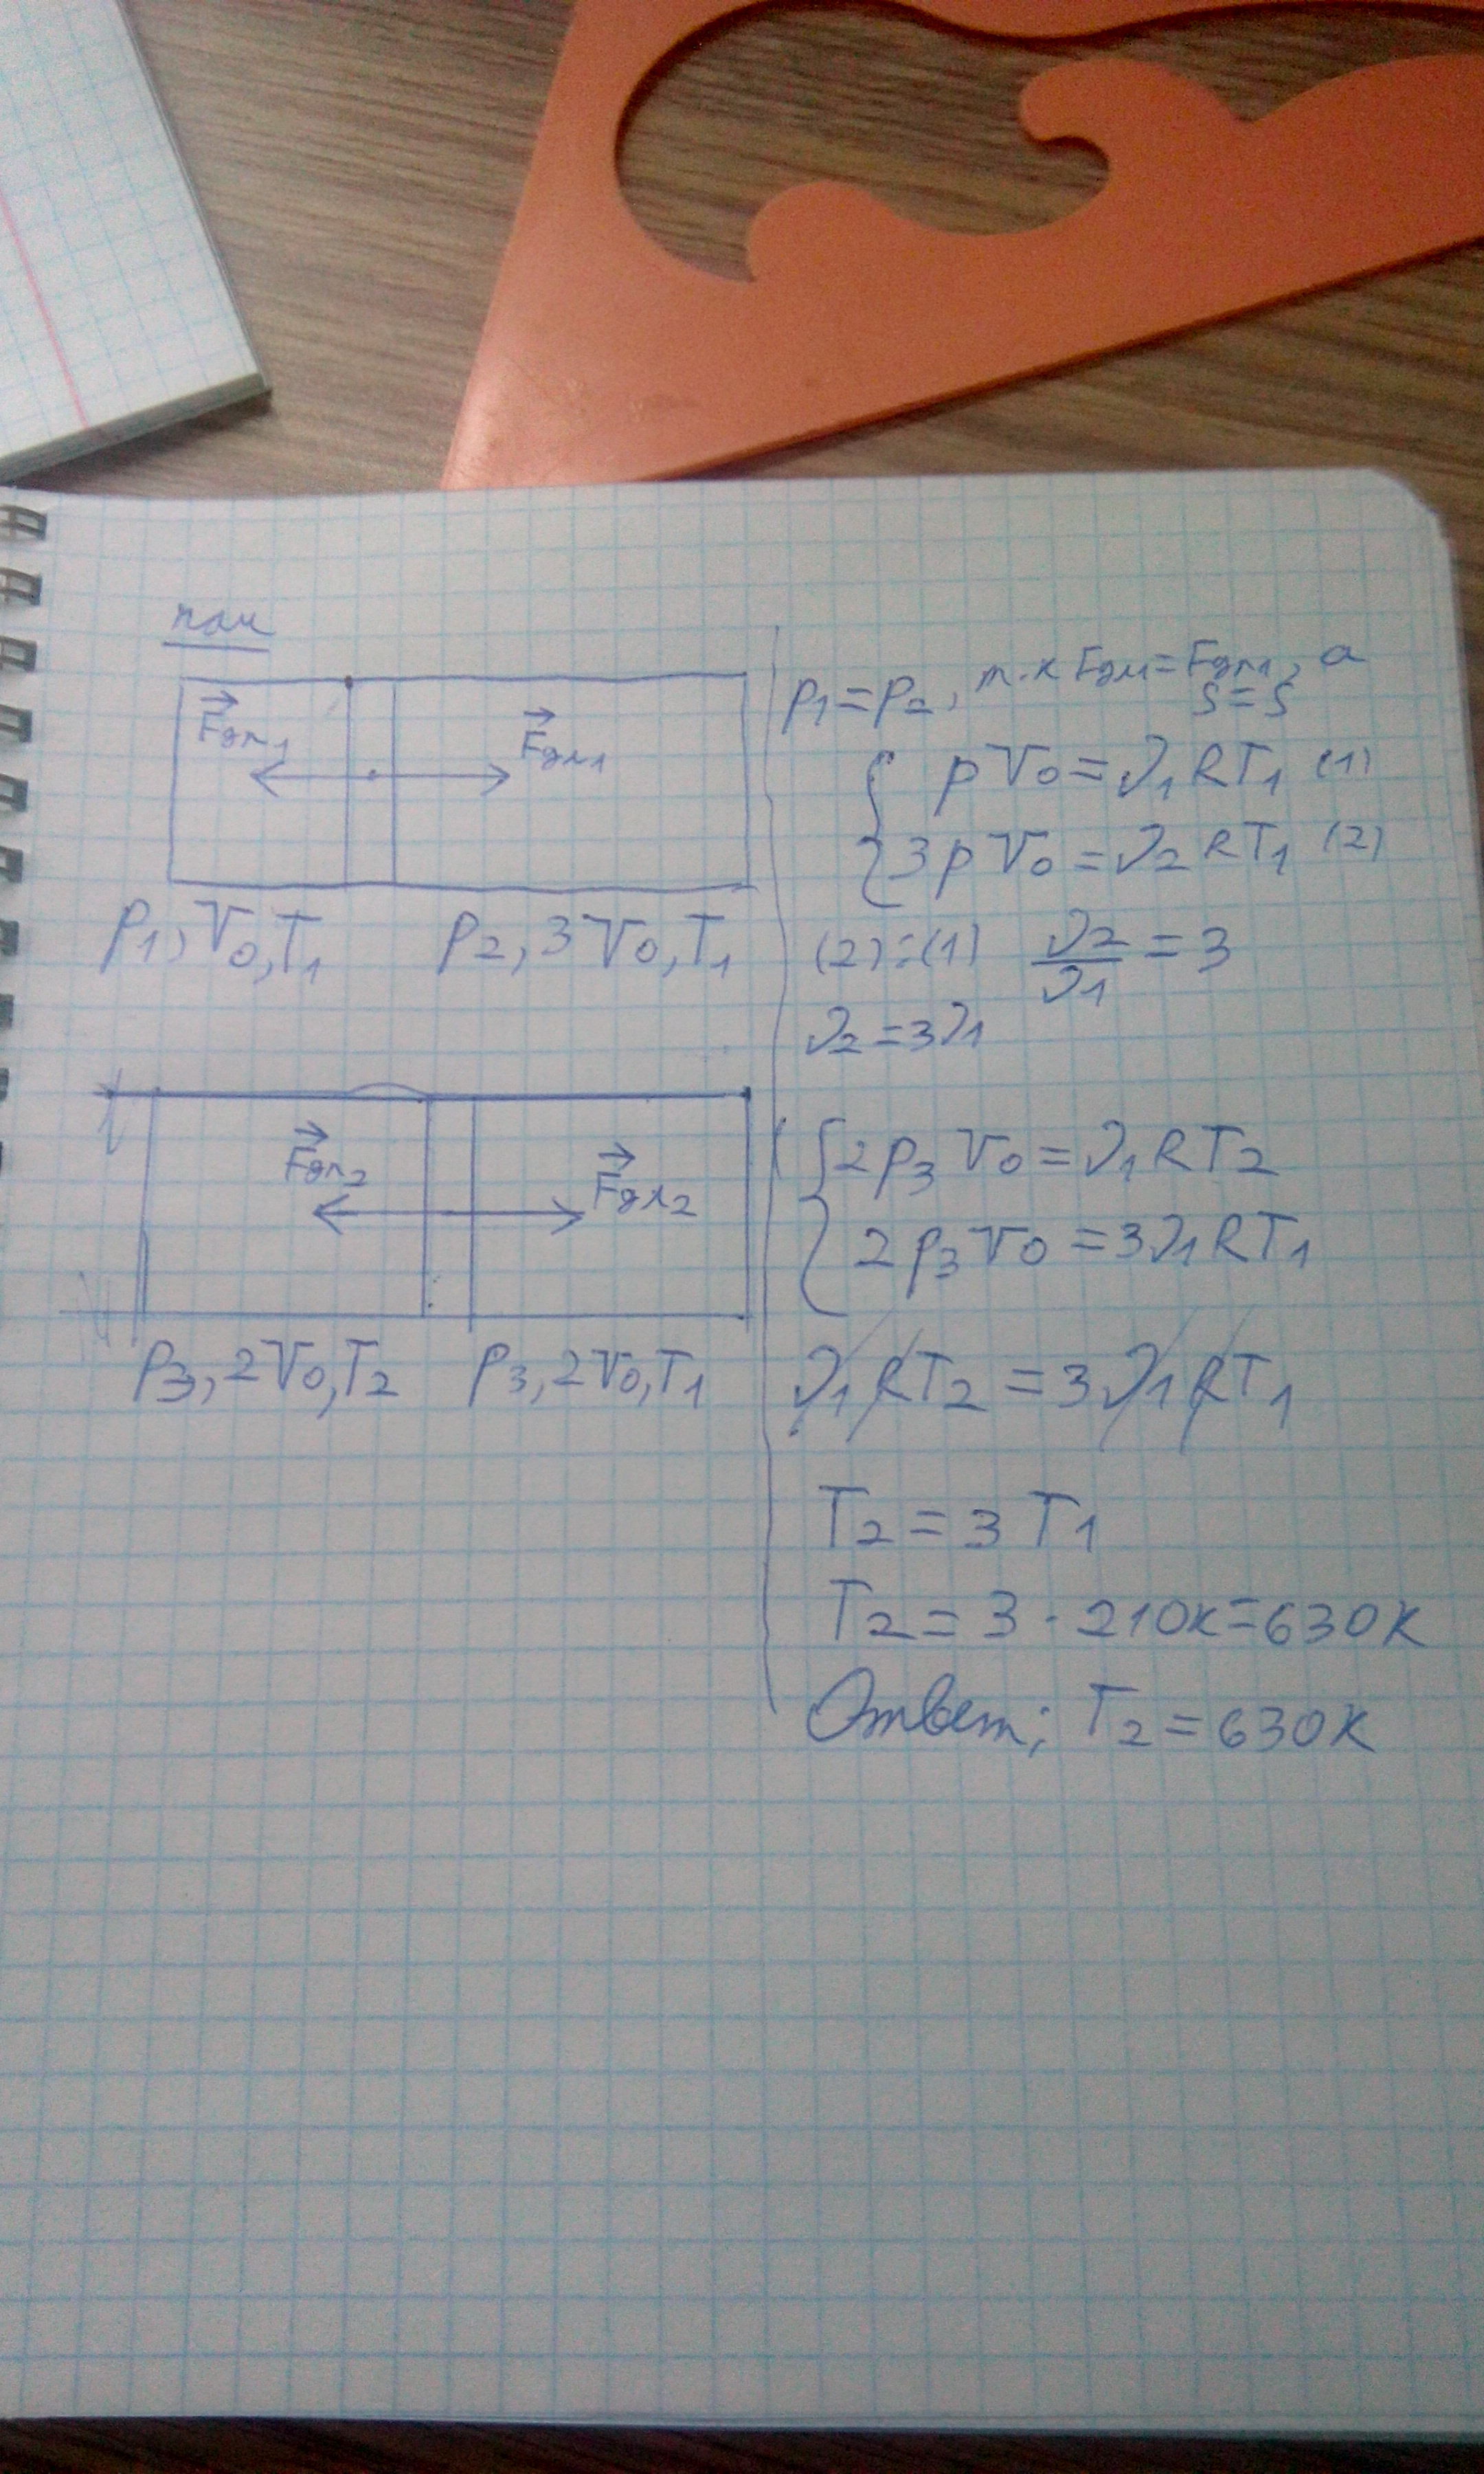 нач
F⃗дл₁
F⃗дл₁
p₁, V₀, T₁
p₂, 3V₀, T₁
F⃗дл₂
F⃗дл₂
p₃, 2V₀, T₂
p₃, 2V₀, T₁
p₁ = p₂, т.к Fдл₁ = Fдл₁, а
S = S
pV₀ = ν₁RT₁ (1)
3pV₀ = ν₂RT₁ (2)
(2):(1) ν₂/ν₁ = 3
ν₂ = 3ν₁
2p₃V₀ = ν₁RT₂
2p₃V₀ = 3ν₁RT₁
ν₁RT₂ = 3ν₁RT₁
T₂ = 3T₁
T₂ = 3 · 210К = 630К
Ответ; T₂ = 630К